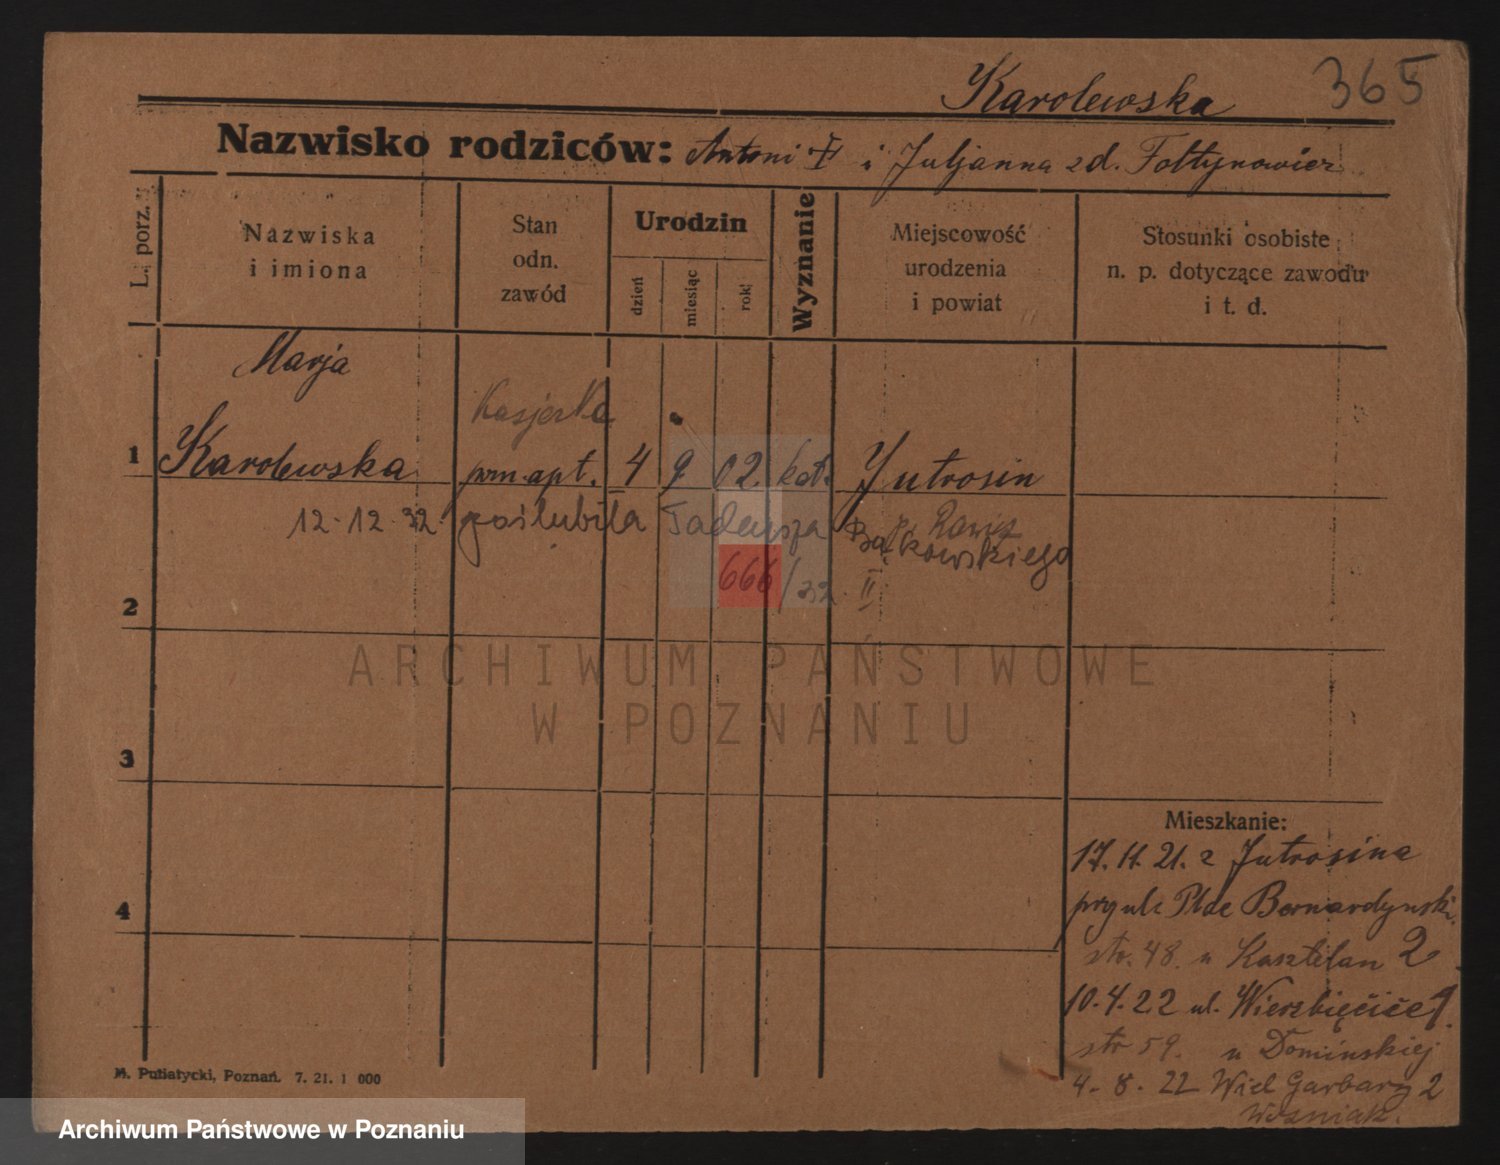 365
Karolewska
Nazwisko rodziców: Antoni i Juljanna z d. Foltynowicz
L. porz.
Nazwiska
i imiona
Stan
odn.
zawód
Urodzin
dzień
miesiąc
rok
Wyznanie
Miejscowość
urodzenia
i powiat
Stosunki osobiste
n. p. dotyczące zawodu
i t. d.
Marja
Kasjerka
1 Karolewska apt. 4 9 02 kat. Jutrosin
12.12.32 poślubiła Tadeusza Bąkowskiego
666/32 II
2
ARCHIWUM PAŃSTWOWE
W POZNANIU
3
Mieszkanie:
17.11.21 z Jutrosina
4
przy ul. Plac Bernardyński
str. 48. u Kasztelan 2
10.4.22 ul. Wierzbięcice 1
str 59. u Domińskiej
4.8.22 Wiel Garbary 2
Woźniak.
M. Putiatycki, Poznań. 7. 21. 1 000
Archiwum Państwowe w Poznaniu